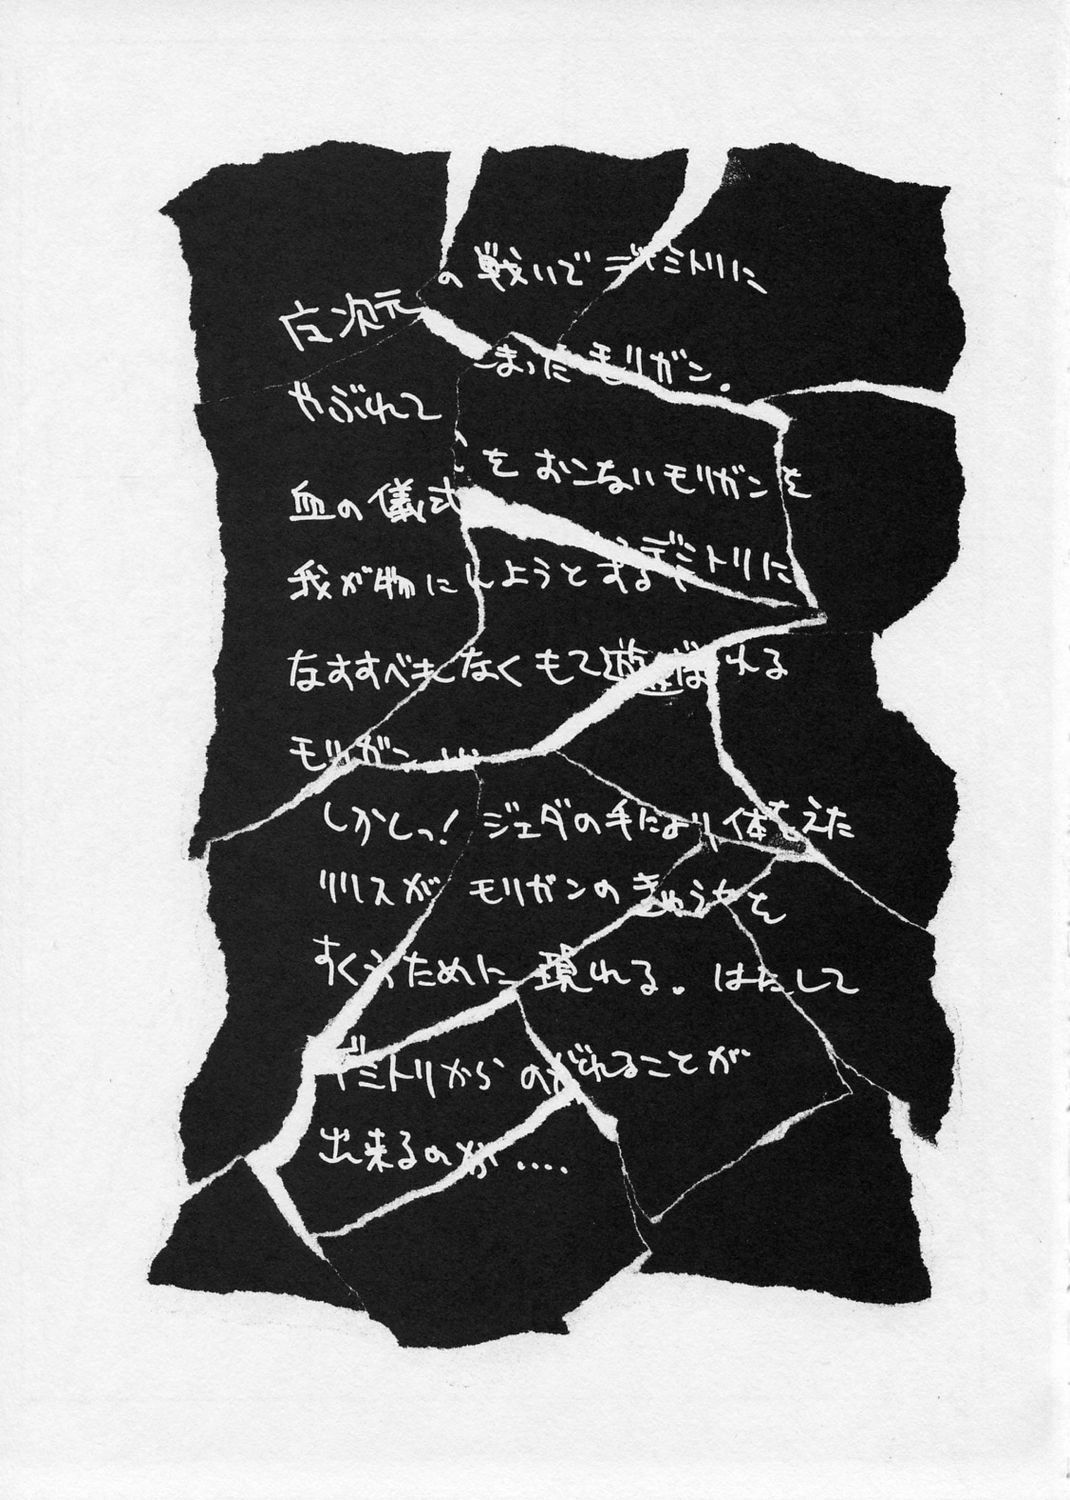 次元の戦いでデミトリに
やぶれて しまったモリガン。
血の儀式をおこないモリガンを
我が物にしようとするデミトリに
なすすべもなくもて遊ばれる
モリガン
しかしっ！ ジェダの手により体をえた
リリスが モリガンのきゅうちを
すくうために現れる。 はたして
デミトリから のがれることが
出来るのか‥‥